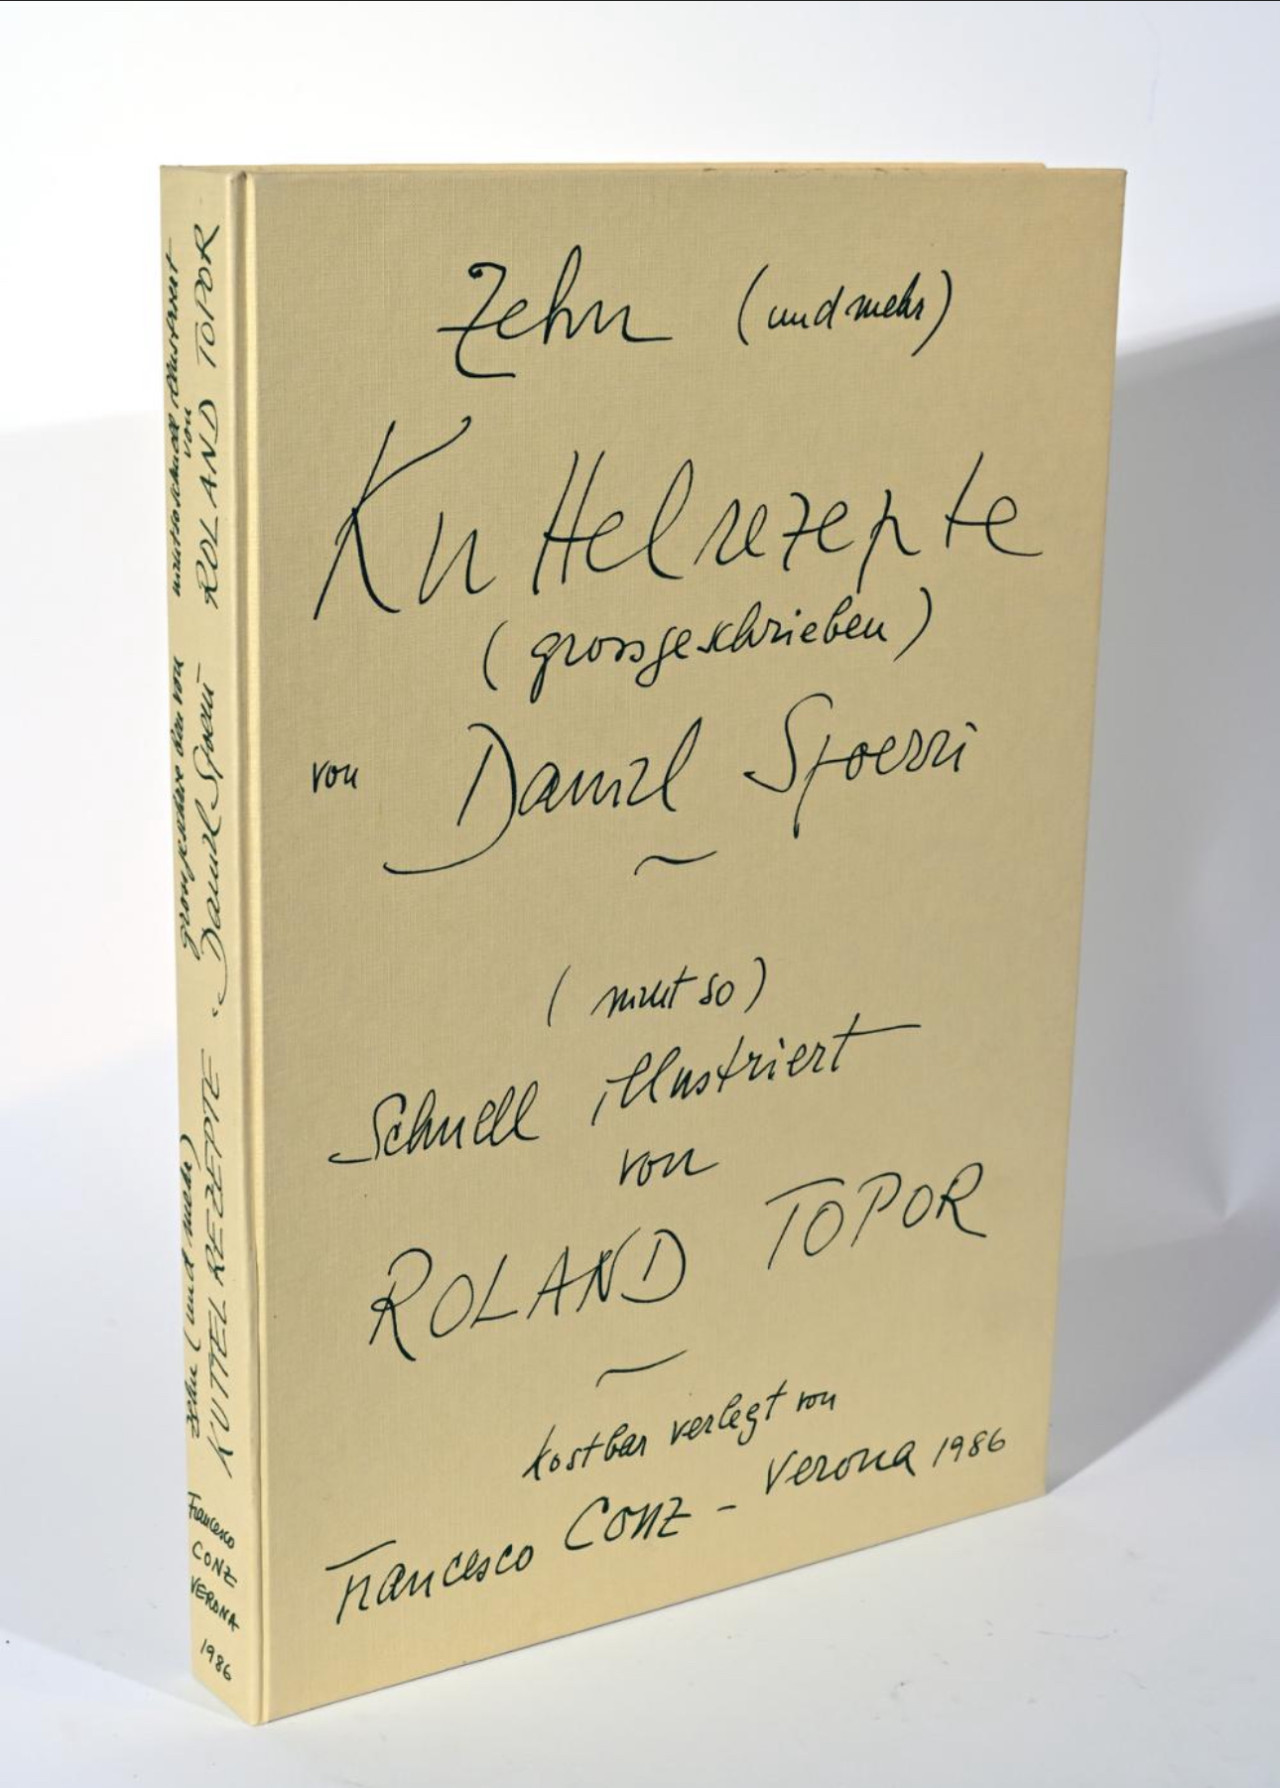 Zehn (und mehr)
Kuttelrezepte
(grossgeschrieben)
von Daniel Spoerri
(nicht so)
Schnell illustriert
von
ROLAND TOPOR
kostbar verlegt von
Francesco CONZ – Verona 1986
Zehn (und mehr) grossgeschrieben von nicht so schnell illustriert von
KUTTEL REZEPTE Daniel Spoerri ROLAND TOPOR
Francesco
CONZ
VERONA
1986